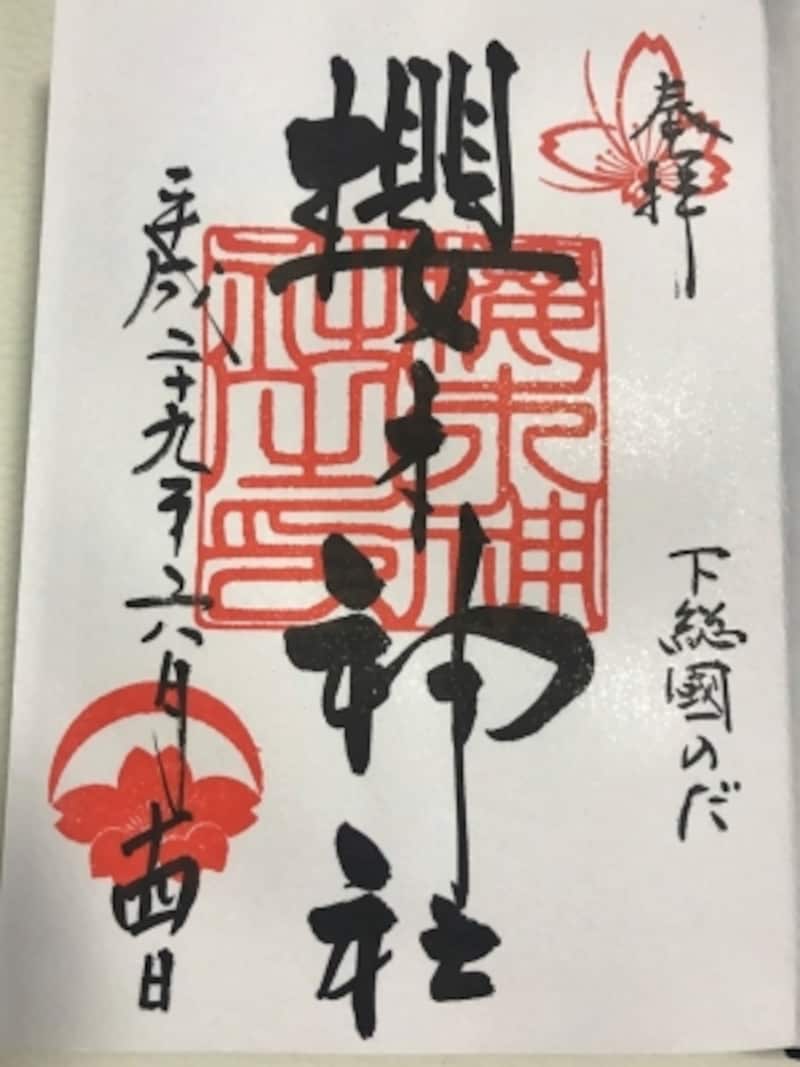 奉拝
下総國のだ
櫻木神社
櫻木神
社之印
平成二十九年六月十四日